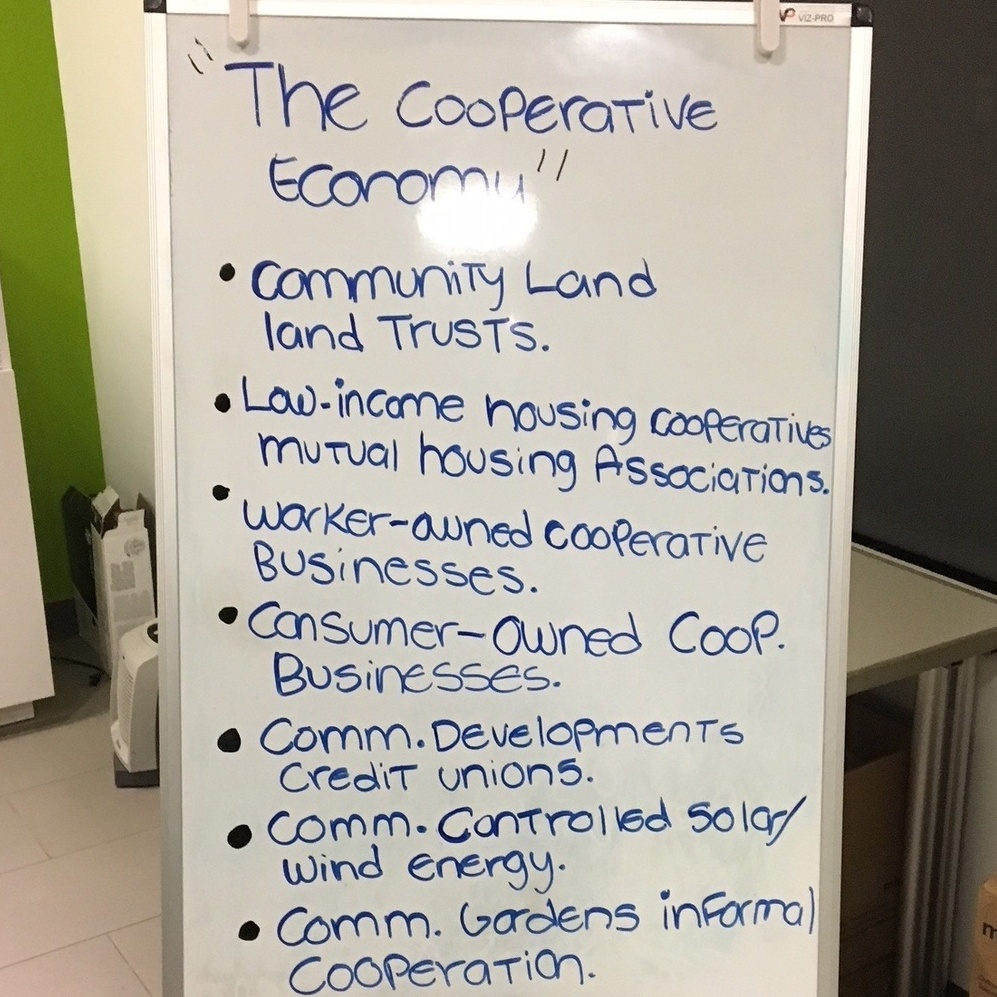 VIZ-PRO
"The Cooperative
Economy"
• Community Land
land Trusts.
• Low-income housing cooperatives
mutual housing Associations.
• Worker-owned cooperative
Businesses.
• Consumer-Owned Coop.
Businesses.
• Comm. Developments
Credit unions.
• Comm. Controlled Solar/
Wind energy.
• Comm. Gardens informal
Cooperation.